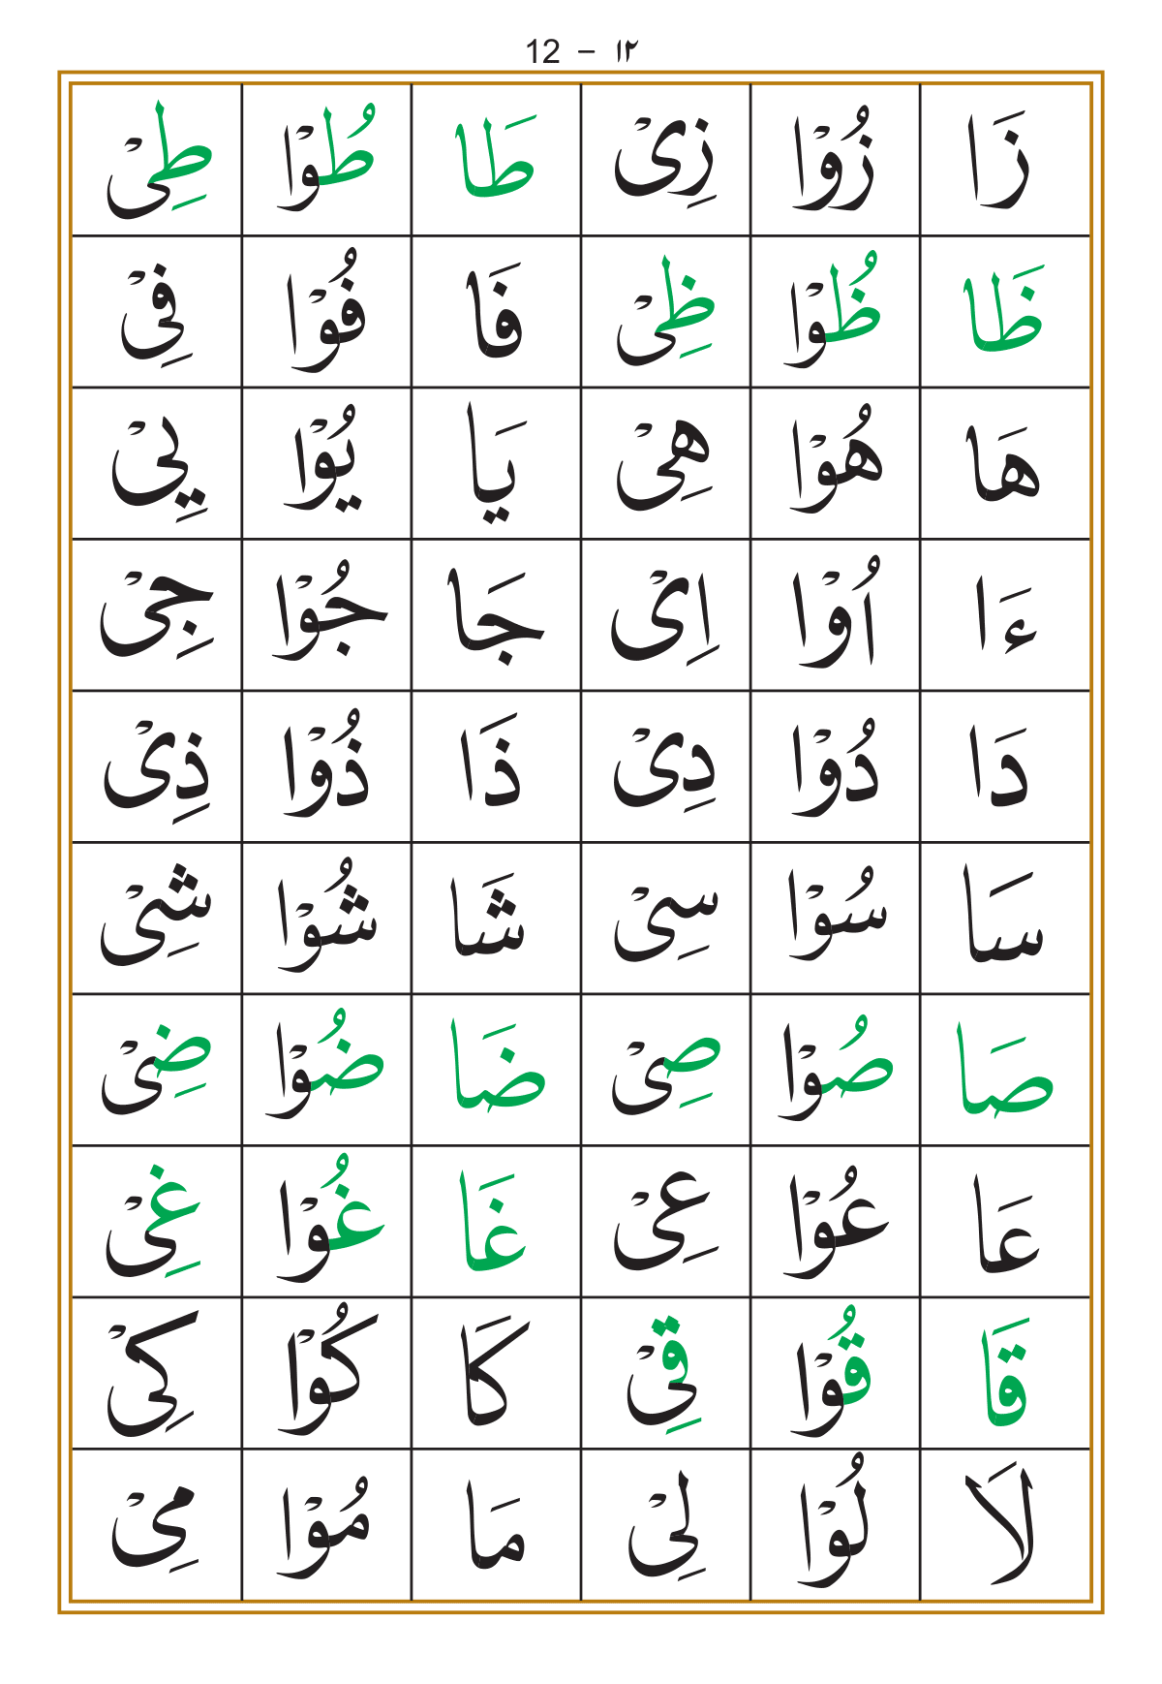 12 – ۱۲
زَا زُوْا زِیْ طَا طُوْا طِیْ
ظَا ظُوْا ظِیْ فَا فُوْا فِیْ
هَا هُوْا هِیْ يَا يُوْا يِیْ
ءَا اُوْا اِیْ جَا جُوْا جِیْ
دَا دُوْا دِیْ ذَا ذُوْا ذِیْ
سَا سُوْا سِیْ شَا شُوْا شِیْ
صَا صُوْا صِیْ ضَا ضُوْا ضِیْ
عَا عُوْا عِیْ غَا غُوْا غِیْ
قَا قُوْا قِیْ كَا كُوْا كِیْ
لَا لُوْا لِیْ مَا مُوْا مِیْ